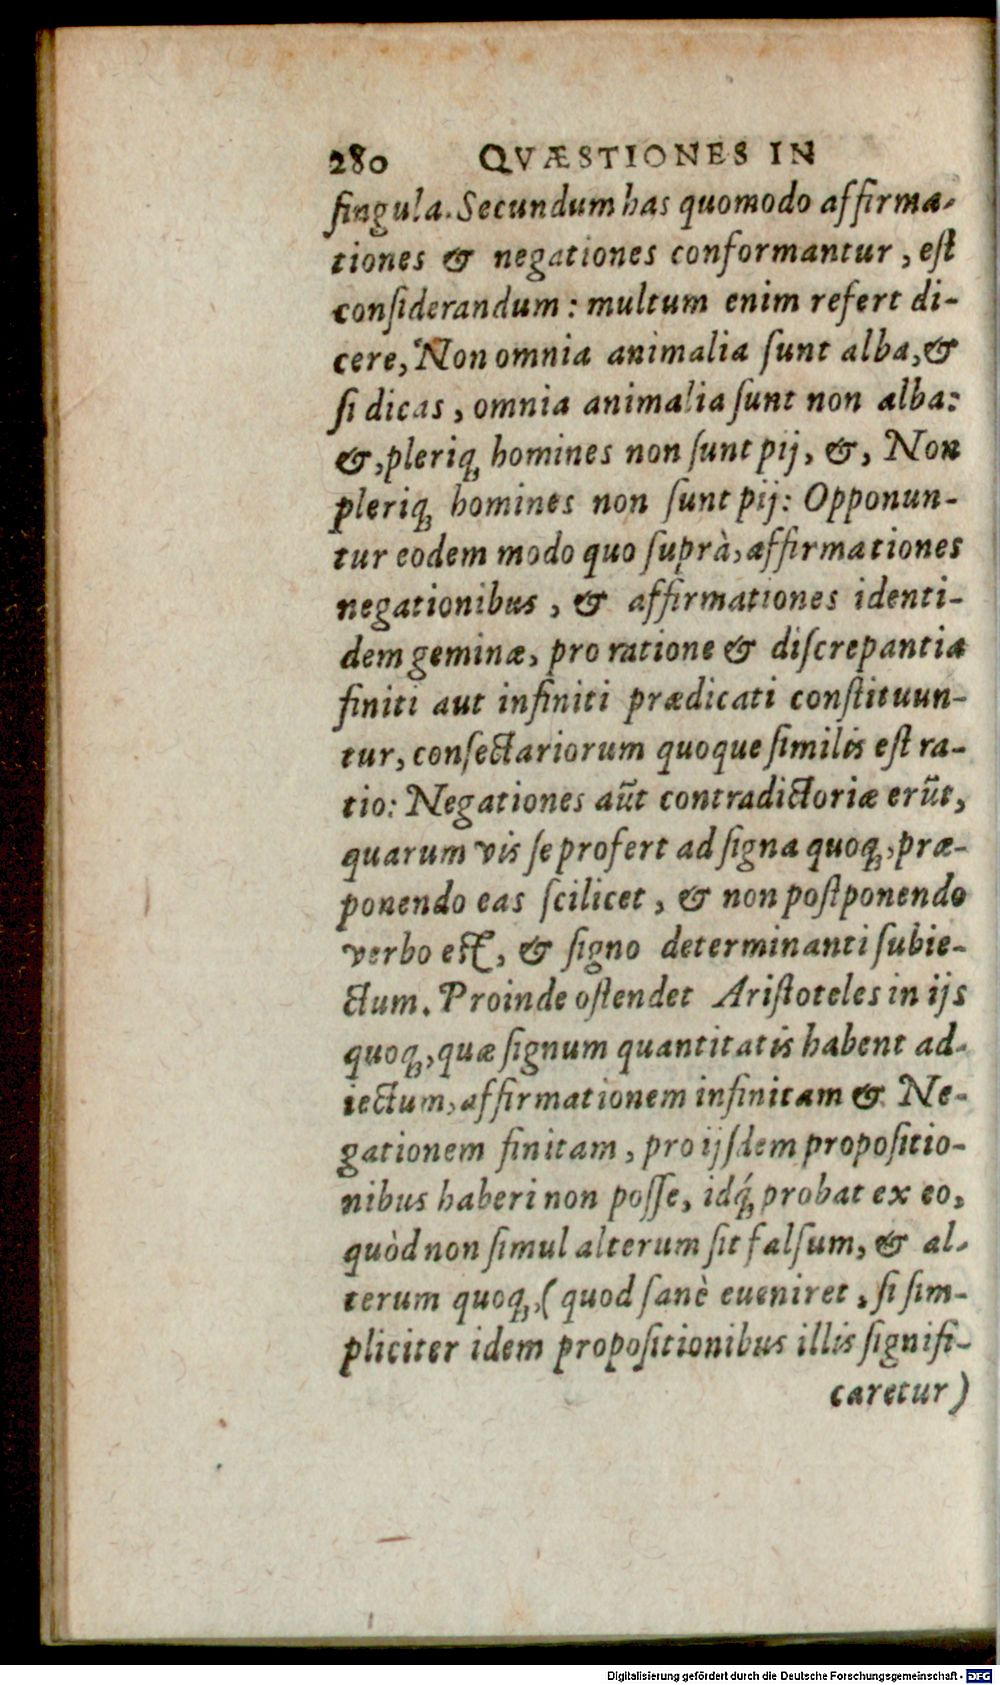 280 QVÆSTIONES IN
ſingula. Secundum has quomodo affirma-
tiones & negationes conformantur, eſt
conſiderandum: multum enim refert di-
cere, Non omnia animalia ſunt alba, &
ſi dicas, omnia animalia ſunt non alba:
&, pleriq; homines non ſunt pij, &, Non
pleriq; homines non ſunt pij: Opponun-
tur eodem modo quo ſuprà, affirmationes
negationibus, & affirmationes identi-
dem geminæ, pro ratione & diſcrepantia
finiti aut infiniti prædicati conſtituun-
tur, conſectariorum quoque ſimilis eſt ra-
tio: Negationes aũt contradictoriæ erũt,
quarum vis ſe profert ad ſigna quoq;, præ-
ponendo eas ſcilicet, & non poſtponendo
verbo eſt, & ſigno determinanti ſubie-
ctum. Proinde oſtendet Ariſtoteles in ijs
quoq;, quæ ſignum quantitatis habent ad-
iectum, affirmationem infinitam & Ne-
gationem finitam, pro ijſdem propoſitio-
nibus haberi non poſſe, idq́; probat ex eo,
quòd non ſimul alterum ſit falſum, & al-
terum quoq;, (quod ſanè eueniret, ſi ſim-
pliciter idem propoſitionibus illis ſignifi-
caretur)
Digitalisierung gefördert durch die Deutsche Forschungsgemeinschaft - DFG